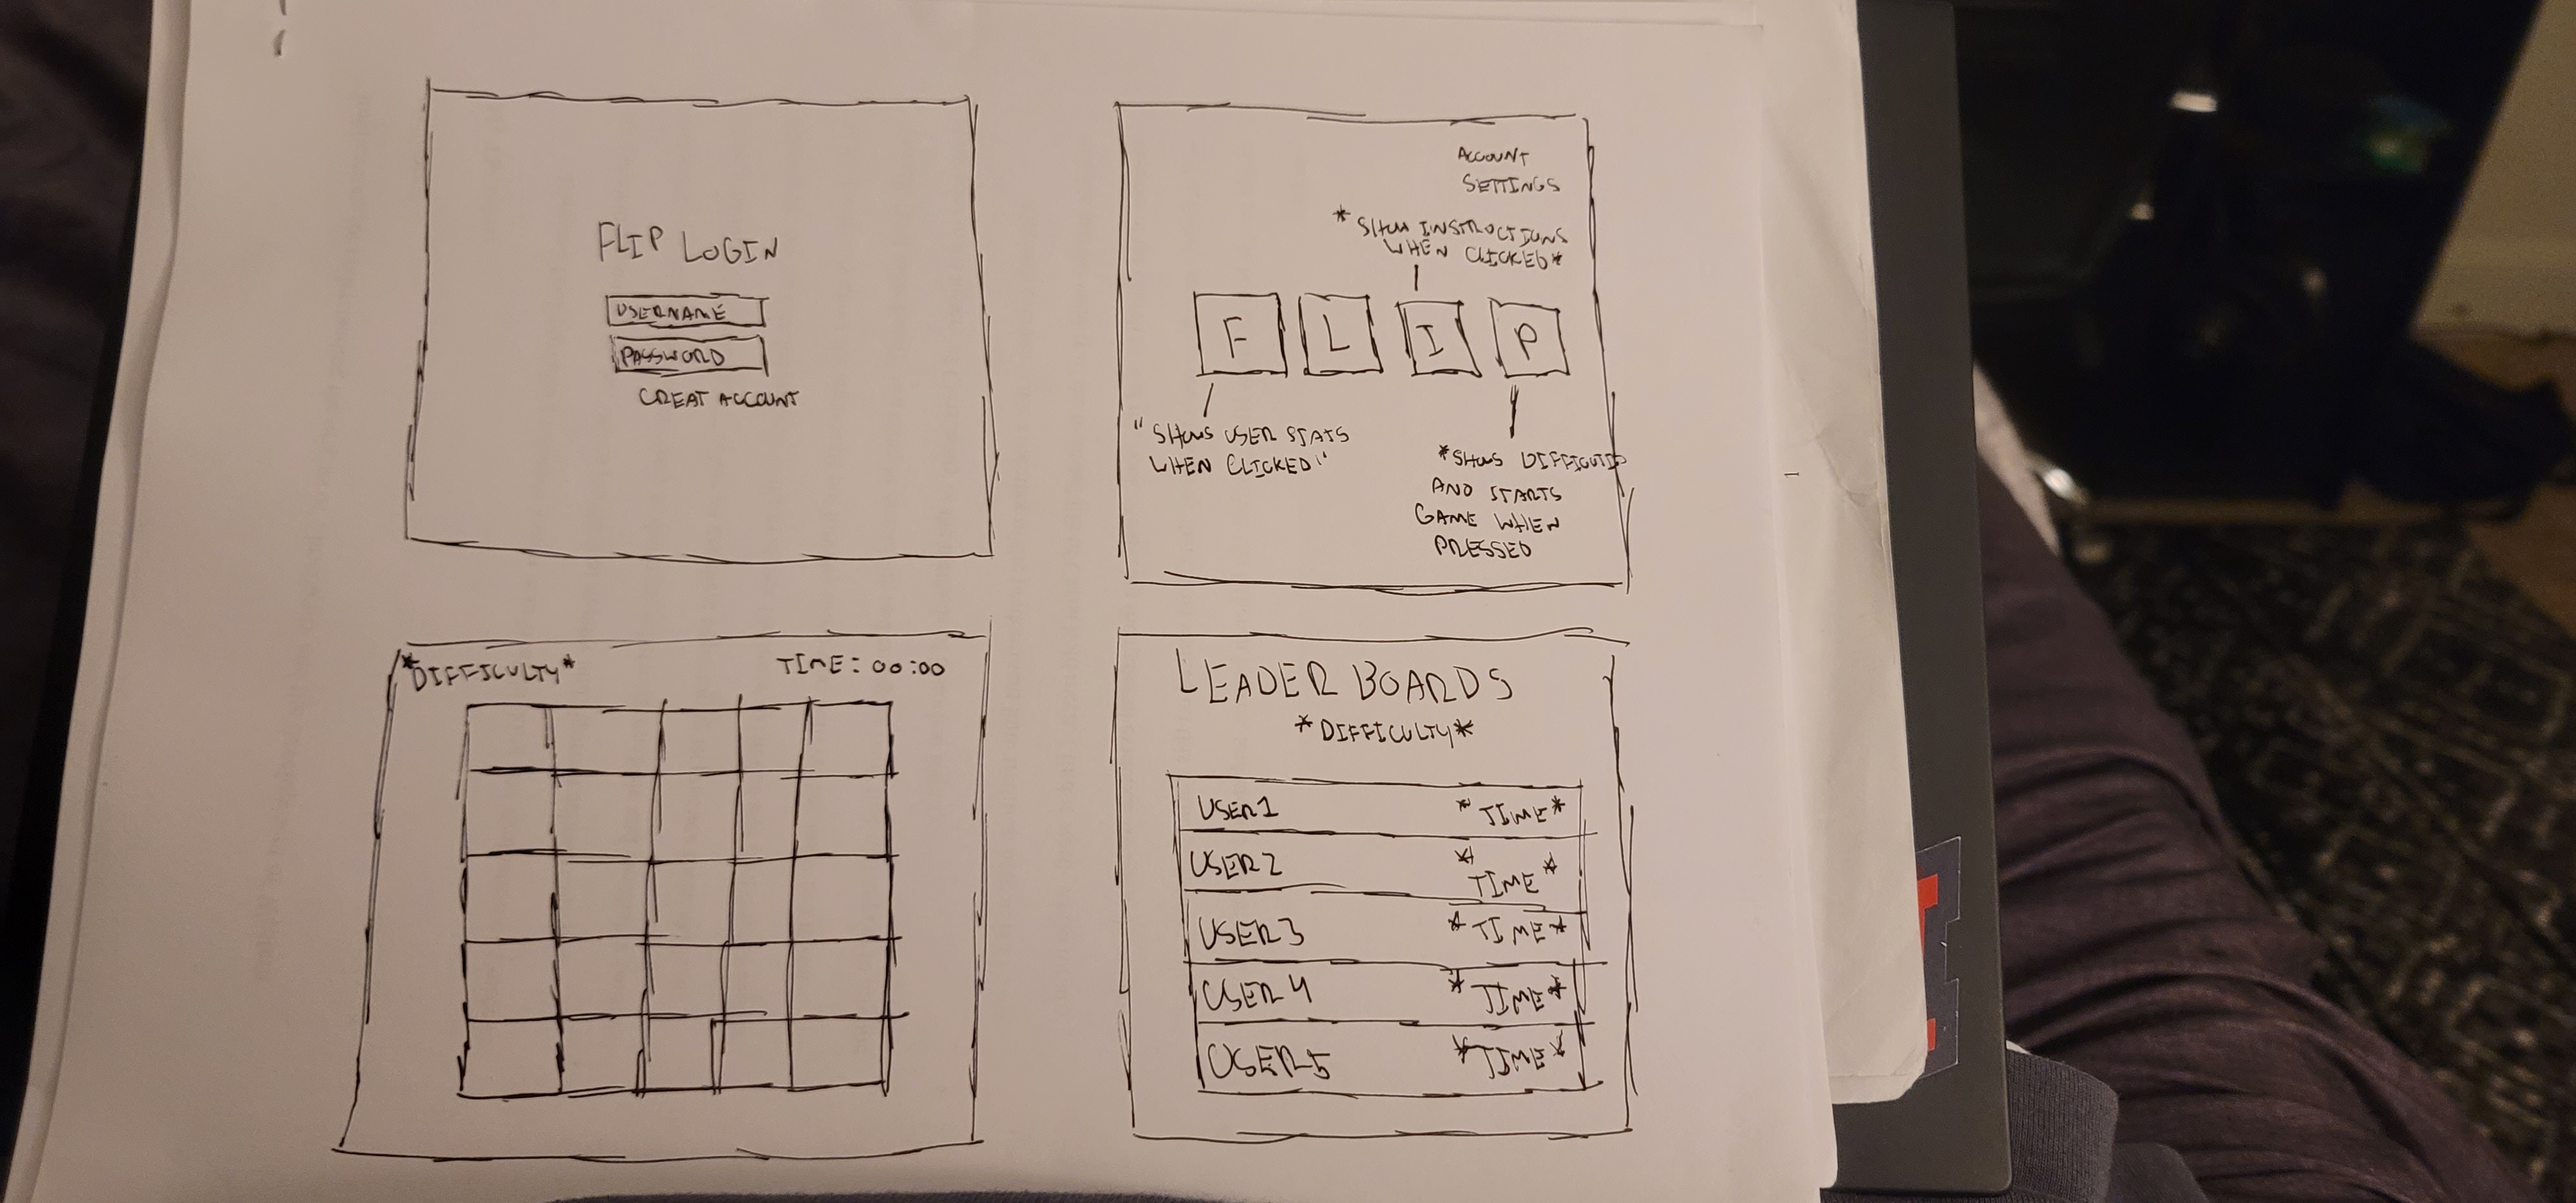 FLIP LOGIN
USERNAME
PASSWORD
CREAT ACCOUNT
ACCOUNT
SETTINGS
*SHOW INSTRUCTIONS
WHEN CLICKED*
F L I P
"SHOWS USER STATS
WHEN CLICKED"
*SHOWS
AND STARTS
GAME WHEN
PRESSED
*DIFFICULTY*
TIME: 00:00
LEADER BOARDS
*DIFFICULTY*
USER1 *TIME*
USER2 *TIME*
USER3 *TIME*
USER4 *TIME*
USER5 *TIME*